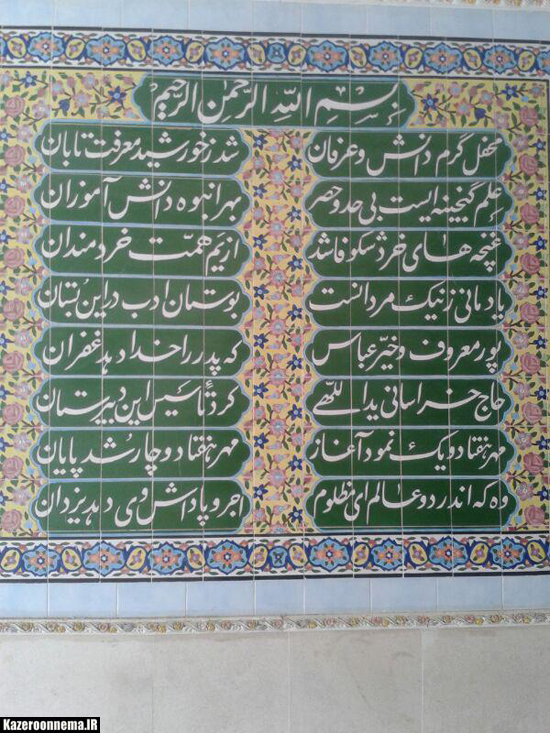 بسم الله الرحمن الرحیم
محفل گرم دانش و عرفان
شد ز خورشید معرفت تابان
علم گنجینه ایست بی حد و حصر
بهر انبوه دانش آموزان
غنچه های خرد شکوفا شد
از یم همت خردمندان
یادمانی ز نیک مردانست
بوستان ادب در این بستان
پور معروف و خیر عباس
که پدر را خدا دهد غفران
حاج خراسانی یداللهی
کرد تأسیس این دبیرستان
مهر هفتاد و یک نمود آغاز
مهر هفتاد و چار شد پایان
وه که اندر دو عالم ای مظلوم
اجر و پاداش وی دهد یزدان
Kazeroonnema.IR